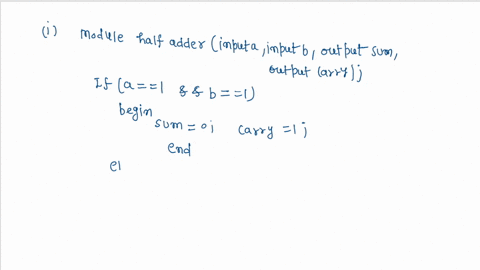 (i) Module half adder (input a, input b, output sum,
output carry);
If (a==1 && b==1)
begin
sum = 0; carry = 1;
end
el